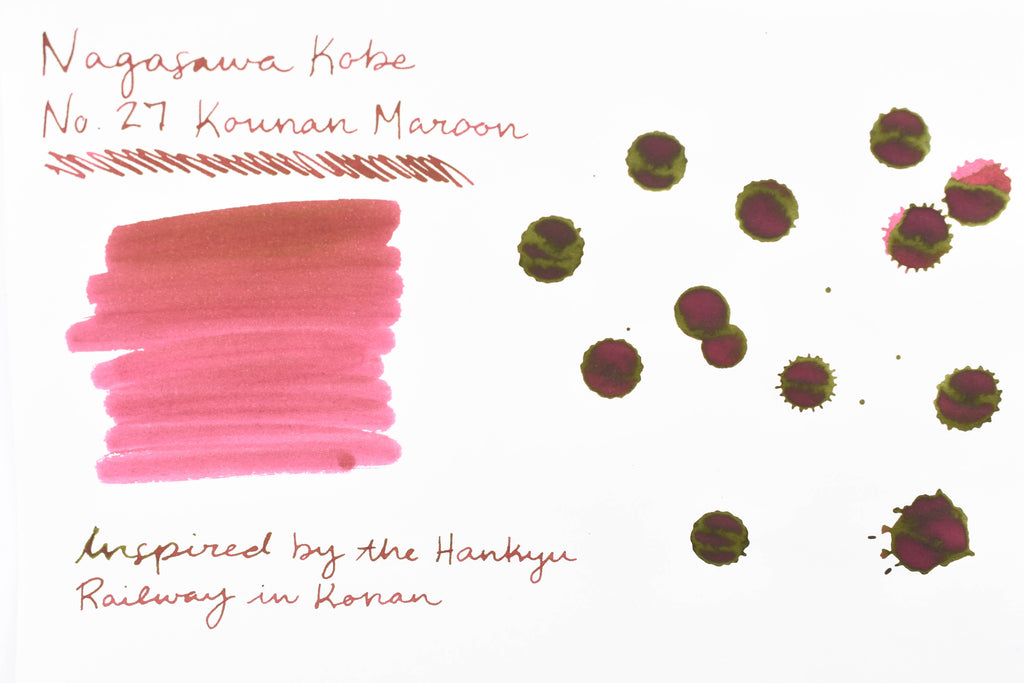 Nagasawa Kobe
No. 27 Kounan Maroon
Inspired by the Hankyu
Railway in Konan